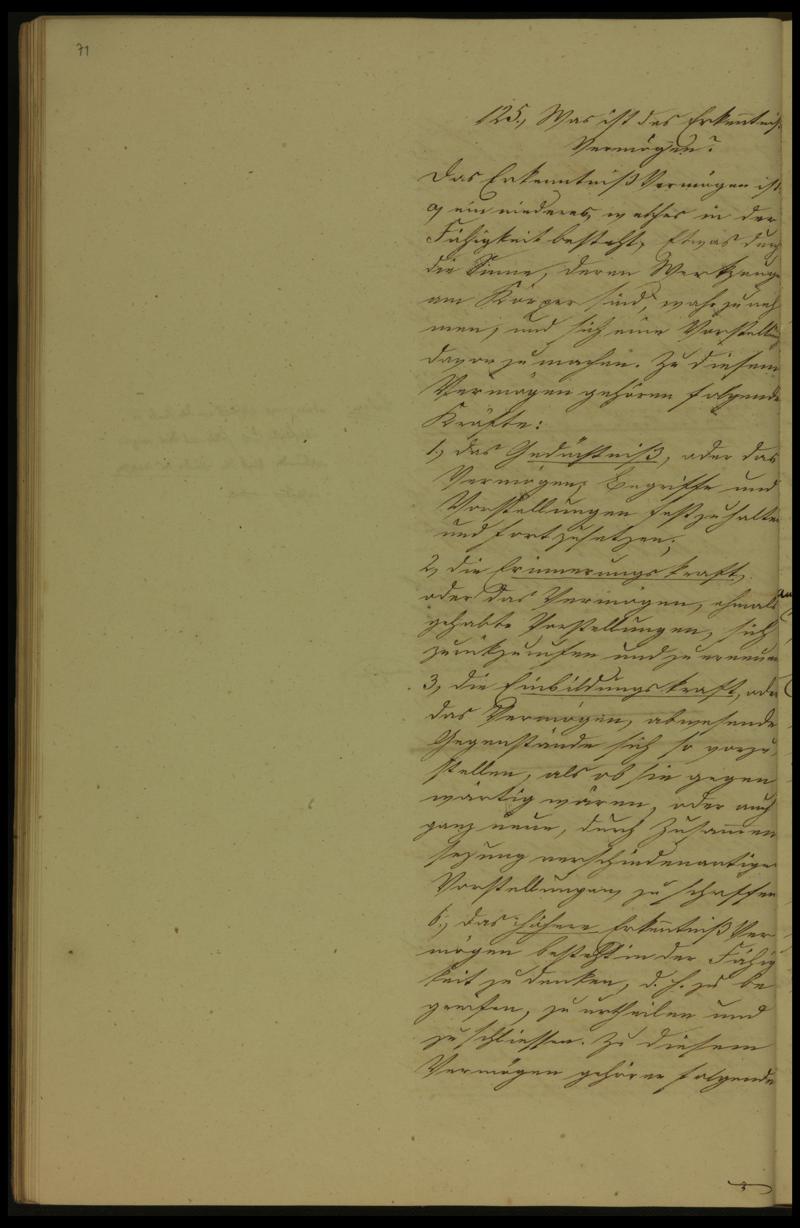 71
125., Was ist das Erkenntniß
Vermögen?
Das Erkenntniß Vermögen ist
a, ein niederes, welches in der
Fähigkeit besteht, Etwas durch
die Sinne, deren Werkzeuge
am Körper sind, wahrzuneh
men, und sich eine Vorstellung
davon zu machen. Zu diesem
Vermögen gehören folgende
Kräfte:
1, das Gedächtniß, oder das
Vermögen, Begriffe und
Vorstellungen festzuhalten
und fortzusetzen;
2, die Erinnerungskraft,
oder das Vermögen, ehmals
gehabte Vorstellungen, sich
zurückzurufen und zu erneuern
3, die Einbildungskraft, oder
das Vermögen, abwesende
Gegenstände sich so vorzu
stellen, als ob sie gegen
wärtig wären, oder auch
ganz neue, durch Zusammen
sezung verschiedenartiger
Vorstellungen, zu schaffen
b, das höhere Erkenntniß Ver
mögen besteht in der Fähig
keit zu denken, d. h. zu be
greifen, zu urtheilen und
zu schliessen. Zu diesem
Vermögen gehören folgende